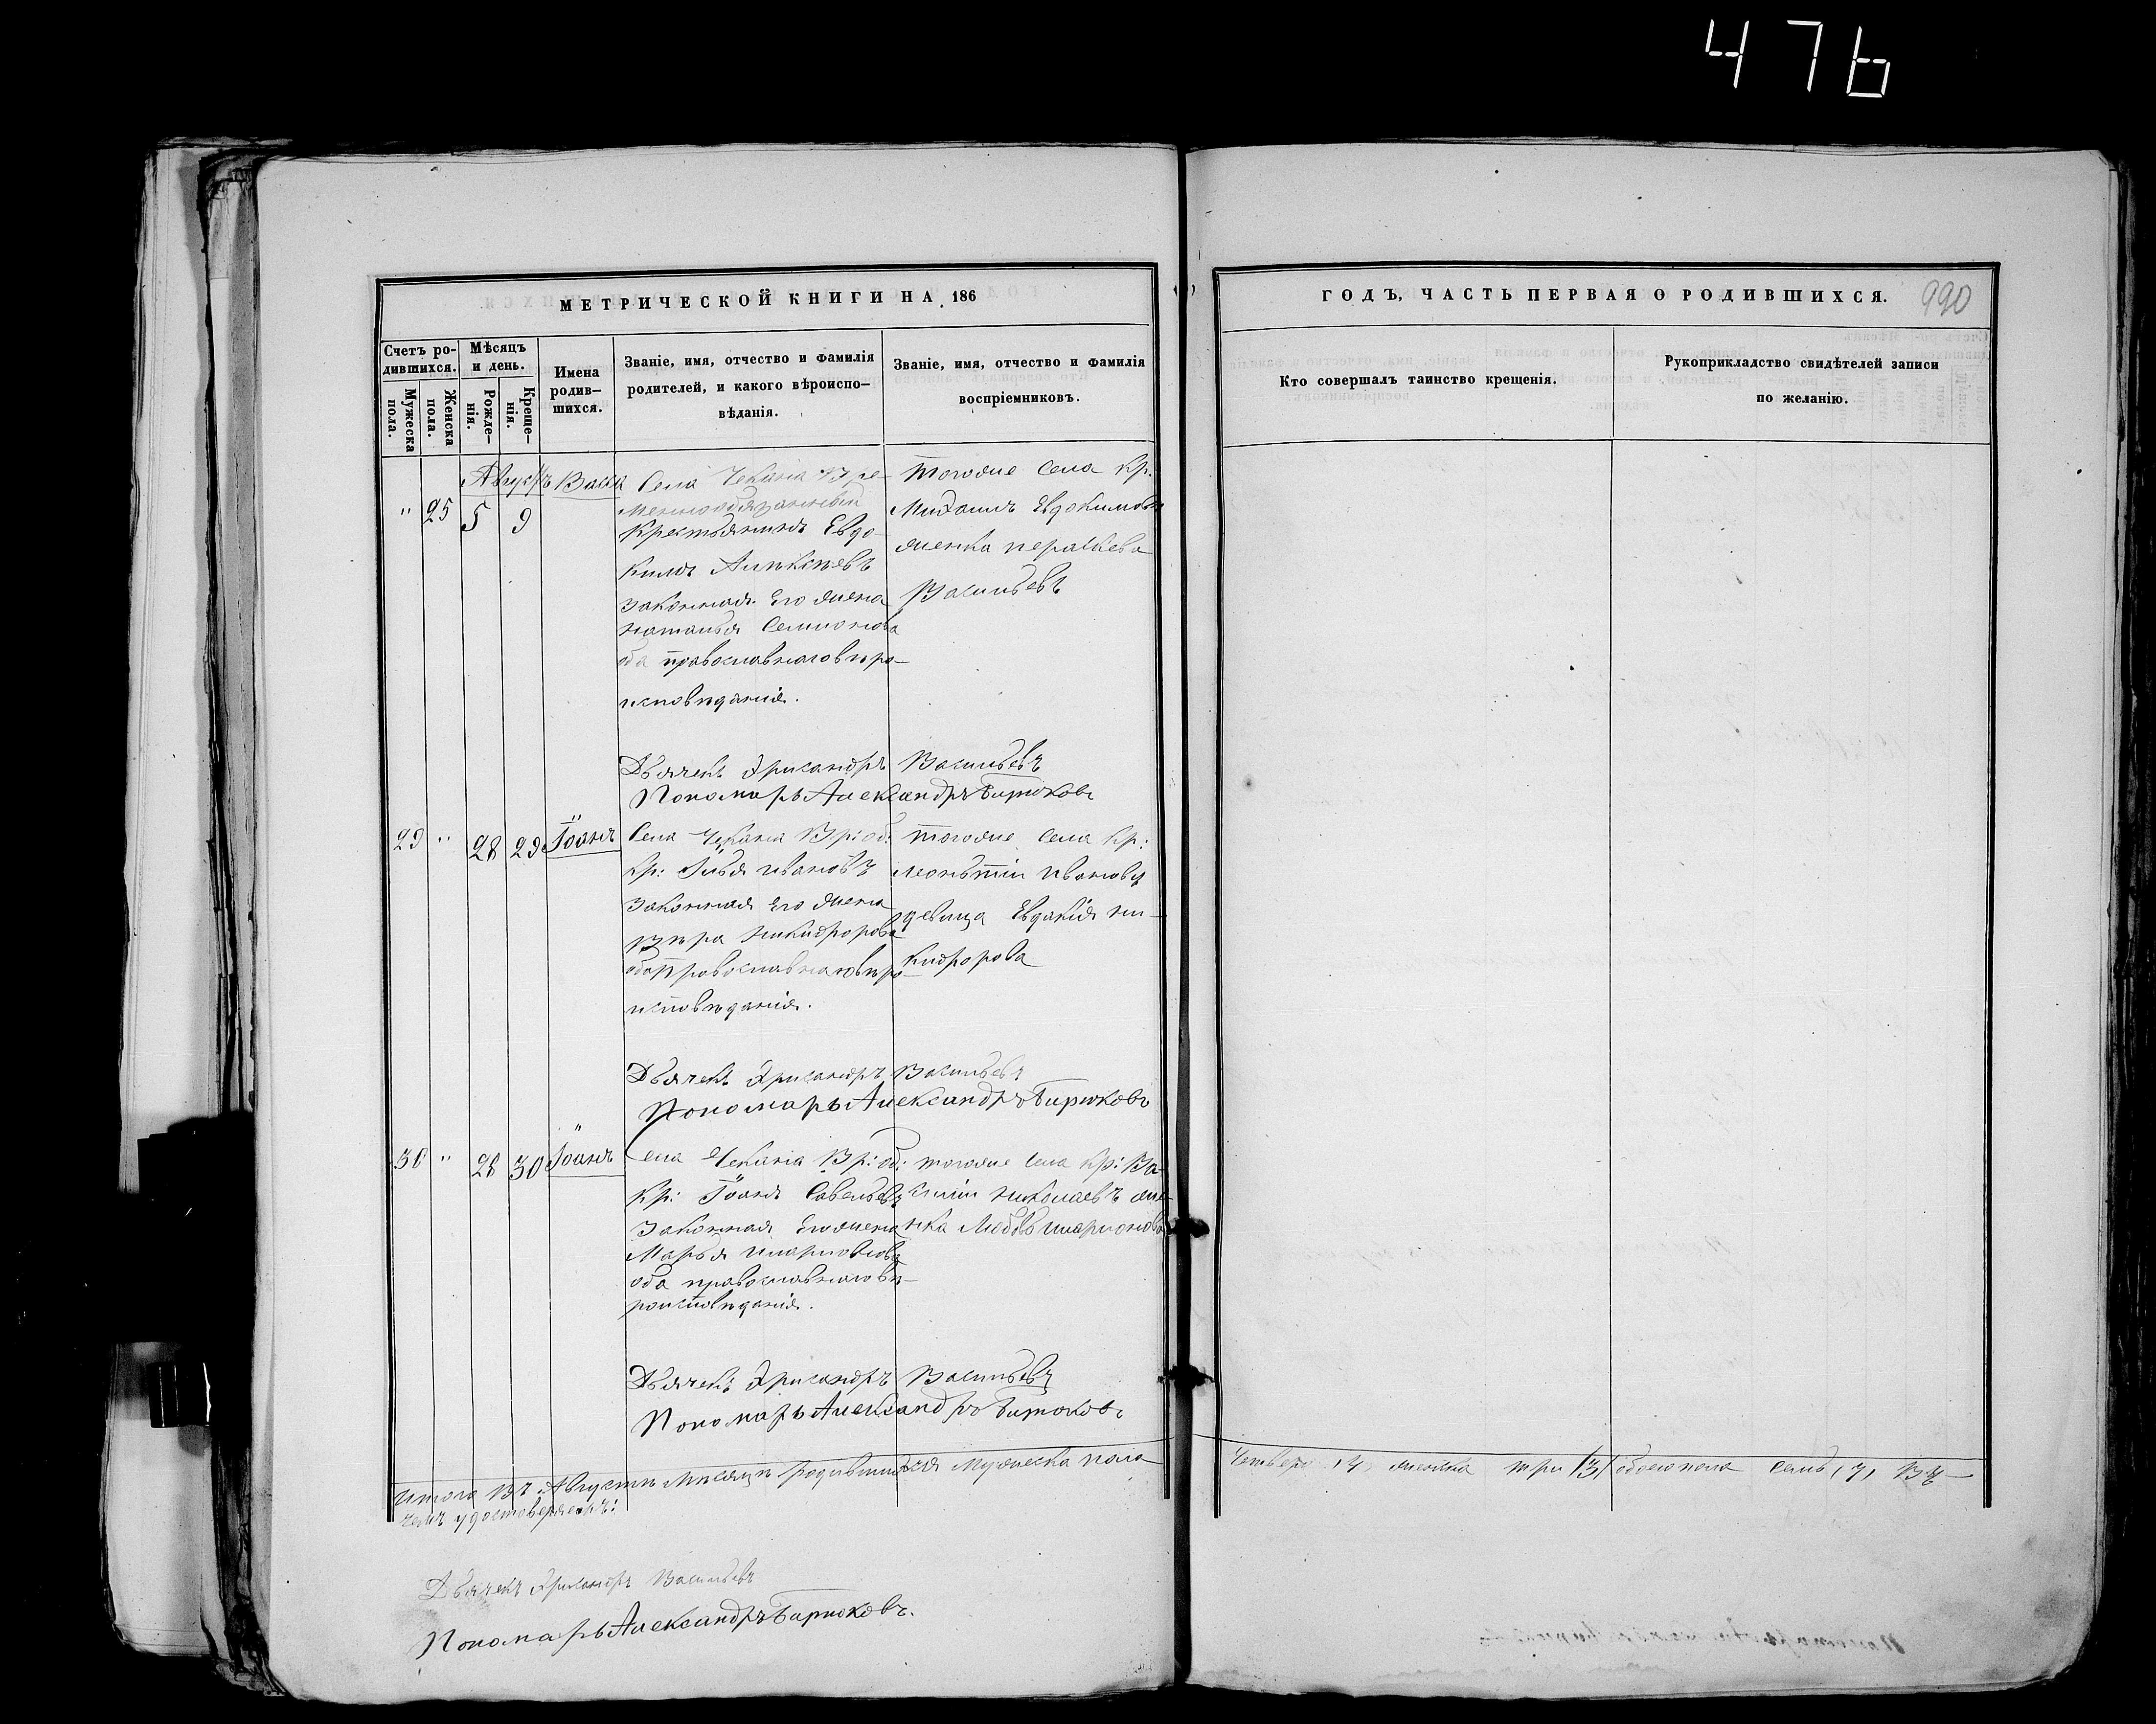 476
МЕТРИЧЕСКОЙ КНИГИ НА 186
Счетъ ро-
дившихся.
Мужеска пола.
Женска пола.
Мѣсяцъ и день.
Рожде-
нія.
Креще-
нія.
Имена
родив-
шихся.
Званіе, имя, отчество и фамилія
родителей, и какого вѣроиспо-
вѣданія.
Званіе, имя, отчество и фамилія
воспріемниковъ.
Августъ
" 25 5 9
Села Чекана Вре-
меннообязанный
Крестьянинъ Евдо-
кимъ Алѣксѣевъ
законная Его жена
наталья Семионова
оба православнаго вѣро-
исповѣданія.
тогоже Села Кр.
Михаилъ Евдокимовъ
женка
Васильевъ
Дьячекъ Хрисандръ Васильевъ
Пономарь Александръ Бирюковъ
29 " 28 29 Іоанъ
Села Чекана Вр: об:
кр: Илья Ивановъ
законная Его жена
Вѣра Никифорова
оба православнаго вѣро-
исповѣданія.
тогоже Села Кр:
леонътіи Ивановъ
девица Евдакія ни-
кифорова
Дьячекъ Хрисандръ Васильевъ
Пономарь Александръ Бирюковъ
30 " 28 30 Іоанъ
Села Чекана Вр: об:
Кр: Іоанъ Савельевъ
Законная Его жена
Марья Иларионова
оба православнаго вѣ-
роисповѣданія.
тогоже Села Кр: Ва-
силіи николаевъ же-
нка Любовь Иларионова
Дьячекъ Хрисандръ Васильевъ
Пономарь Александръ Бирюковъ
Итого Въ Августѣ Мѣсяцѣ родившихся Мужеска пола
чемъ удостоверяемъ:
Дьячекъ Хрисандръ Васильевъ
Пономарь Александръ Бирюковъ.
ГОДЪ, ЧАСТЬ ПЕРВАЯ О РОДИВШИХСЯ.
990
Кто совершалъ таинство крещенія.
Рукоприкладство свидѣтелей записи
по желанію.
четверо ,4, женска три /3/ обоего пола семь ,7, Въ